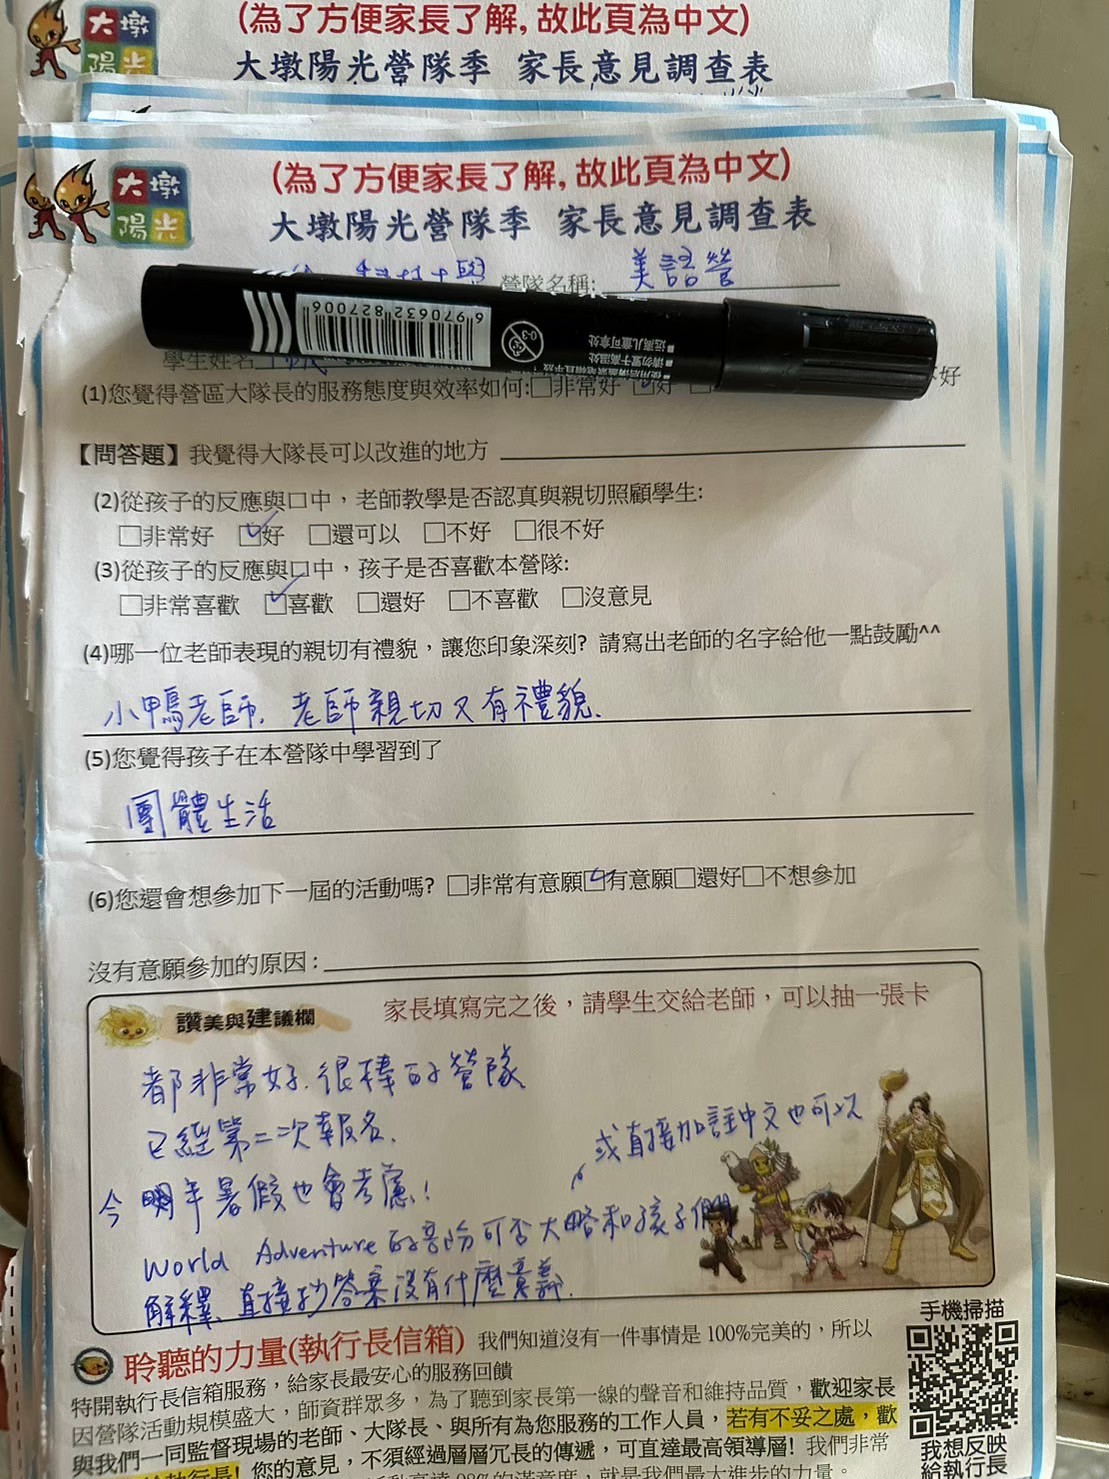 (為了方便家長了解,故此頁為中文)
大墩
陽光
大墩陽光營隊季 家長意見調查表
(為了方便家長了解,故此頁為中文)
大墩
陽光
大墩陽光營隊季 家長意見調查表
營隊名稱: 美語營
6 970632 827006
0-3
學生姓名
(1)您覺得營區大隊長的服務態度與效率如何:□非常好 □好 □ 好
【問答題】我覺得大隊長可以改進的地方
(2)從孩子的反應與口中,老師教學是否認真與親切照顧學生:
□非常好 ☑好 □還可以 □不好 □很不好
(3)從孩子的反應與口中,孩子是否喜歡本營隊:
□非常喜歡 ☑喜歡 □還好 □不喜歡 □沒意見
(4)哪一位老師表現的親切有禮貌,讓您印象深刻? 請寫出老師的名字給他一點鼓勵^^
小鴨老師. 老師親切又有禮貌.
(5)您覺得孩子在本營隊中學習到了
團體生活
(6)您還會想參加下一屆的活動嗎? □非常有意願☑有意願□還好□不想參加
沒有意願參加的原因:
讚美與建議欄 家長填寫完之後,請學生交給老師,可以抽一張卡
都非常好.很棒的營隊
已經第二次報名.
或直接加註中文也可以
今年暑假也會考慮!
World Adventure 的部份可否大略和孩子們
解釋,直接抄答案沒有什麼意義.
手機掃描
聆聽的力量(執行長信箱) 我們知道沒有一件事情是 100%完美的,所以
特開執行長信箱服務,給家長最安心的服務回饋
因營隊活動規模盛大,師資群眾多,為了聽到家長第一線的聲音和維持品質,歡迎家長
與我們一同監督現場的老師、大隊長、與所有為您服務的工作人員,若有不妥之處,歡
執行長! 您的意見,不須經過層層冗長的傳遞,可直達最高領導層! 我們非常
98%的滿意度,就是我們最大進步的力量。
我想反映
給執行長